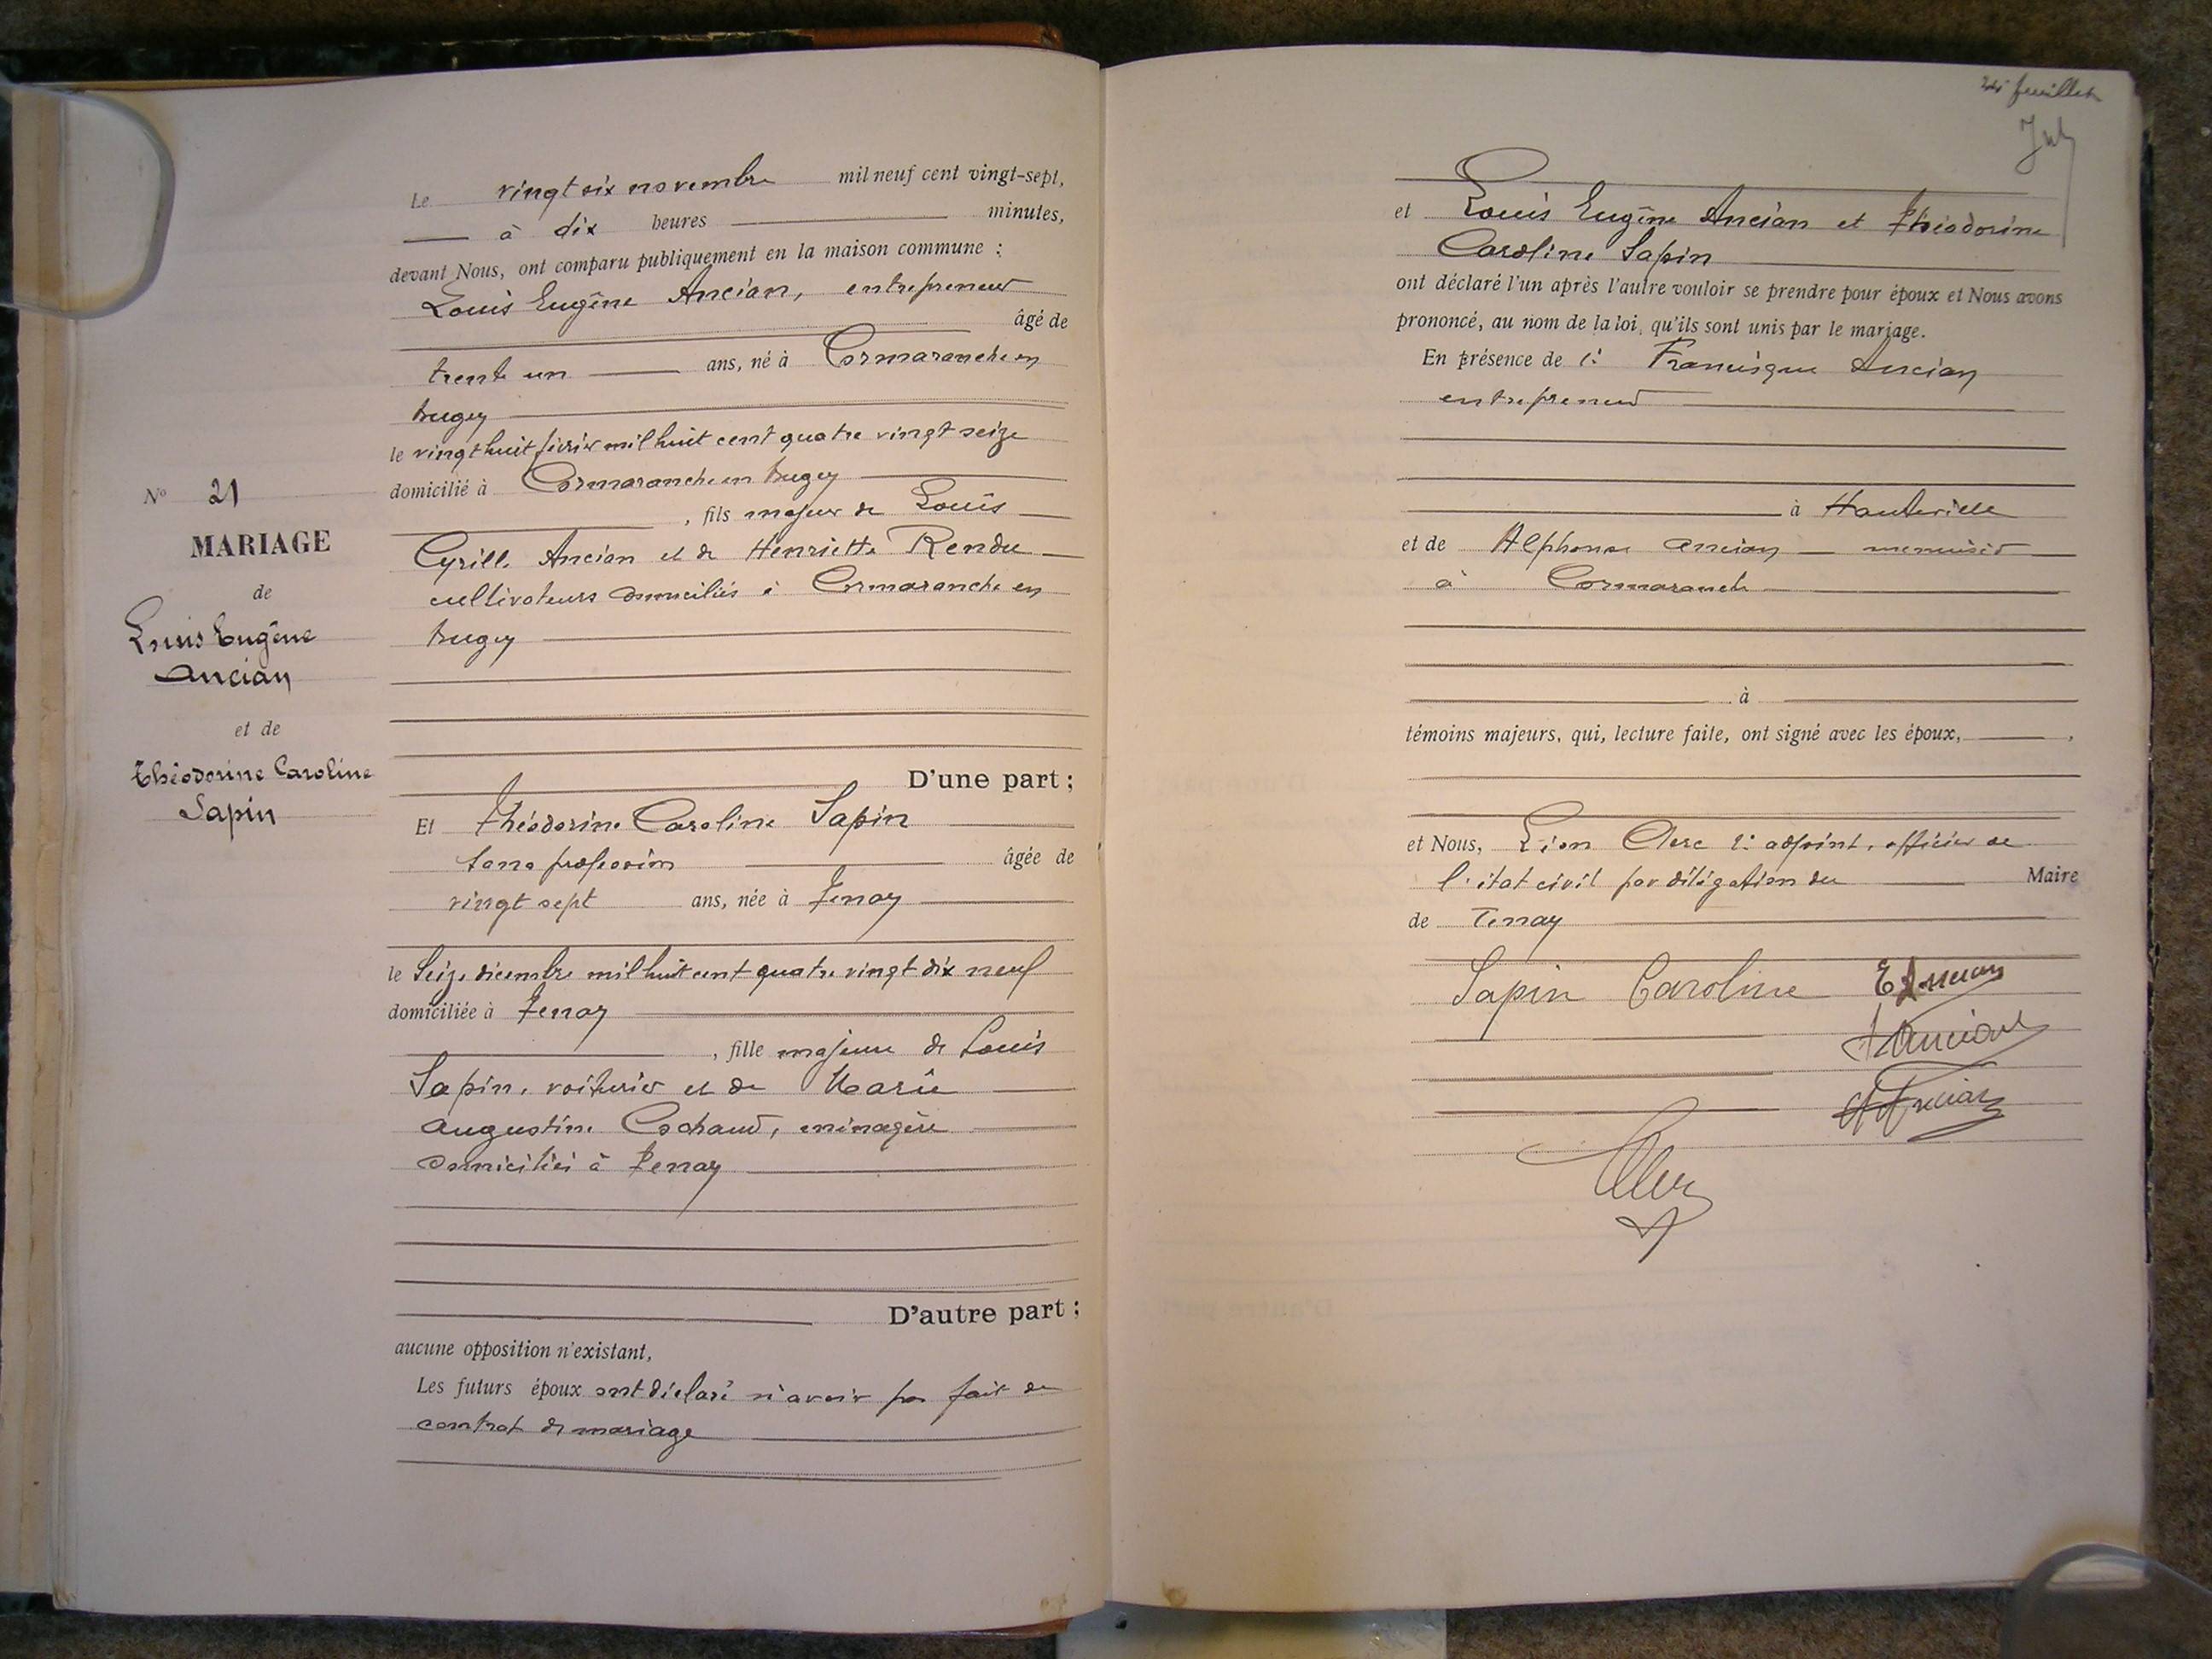 Le vingt six novembre mil neuf cent vingt-sept,
à dix heures minutes,
devant Nous, ont comparu publiquement en la maison commune :
Louis Eugène Ancian, entrepreneur
âgé de
trente un ans, né à Cormaranche en
bugey
le vingt huit février mil huit cent quatre vingt seize
domicilié à Cormaranche en bugey
, fils majeur de Louis
Cyrille Ancian et de Henriette Rendu
cultivateurs domiciliés à Cormaranche en
bugey
D'une part ;
Et Théodorine Caroline Sapin
sans profession âgée de
vingt sept ans, née à Tenay
le Seize décembre mil huit cent quatre vingt dix neuf
domiciliée à Tenay
, fille majeure de Louis
Sapin, voiturier et de Marie
Augustine Cochaud, ménagère
domiciliés à Tenay
D'autre part ;
aucune opposition n'existant,
Les futurs époux ont déclaré n'avoir pas fait de
contrat de mariage
N° 21
MARIAGE
de
Louis Eugène
Ancian
et de
Théodorine Caroline
Sapin
feuillet
et Louis Eugène Ancian et Théodorine
Caroline Sapin
ont déclaré l'un après l'autre vouloir se prendre pour époux et Nous avons
prononcé, au nom de la loi, qu'ils sont unis par le mariage.
En présence de Francisque Ancian
entrepreneur
à Hauteville
et de Alphonse Ancian menuisier
à Cormaranche
à
témoins majeurs, qui, lecture faite, ont signé avec les époux, ,
et Nous, Léon Clerc adjoint, officier de
l'état civil par délégation du Maire
de Tenay
Sapin Caroline E Ancian
Ancian
A Ancian
Clerc